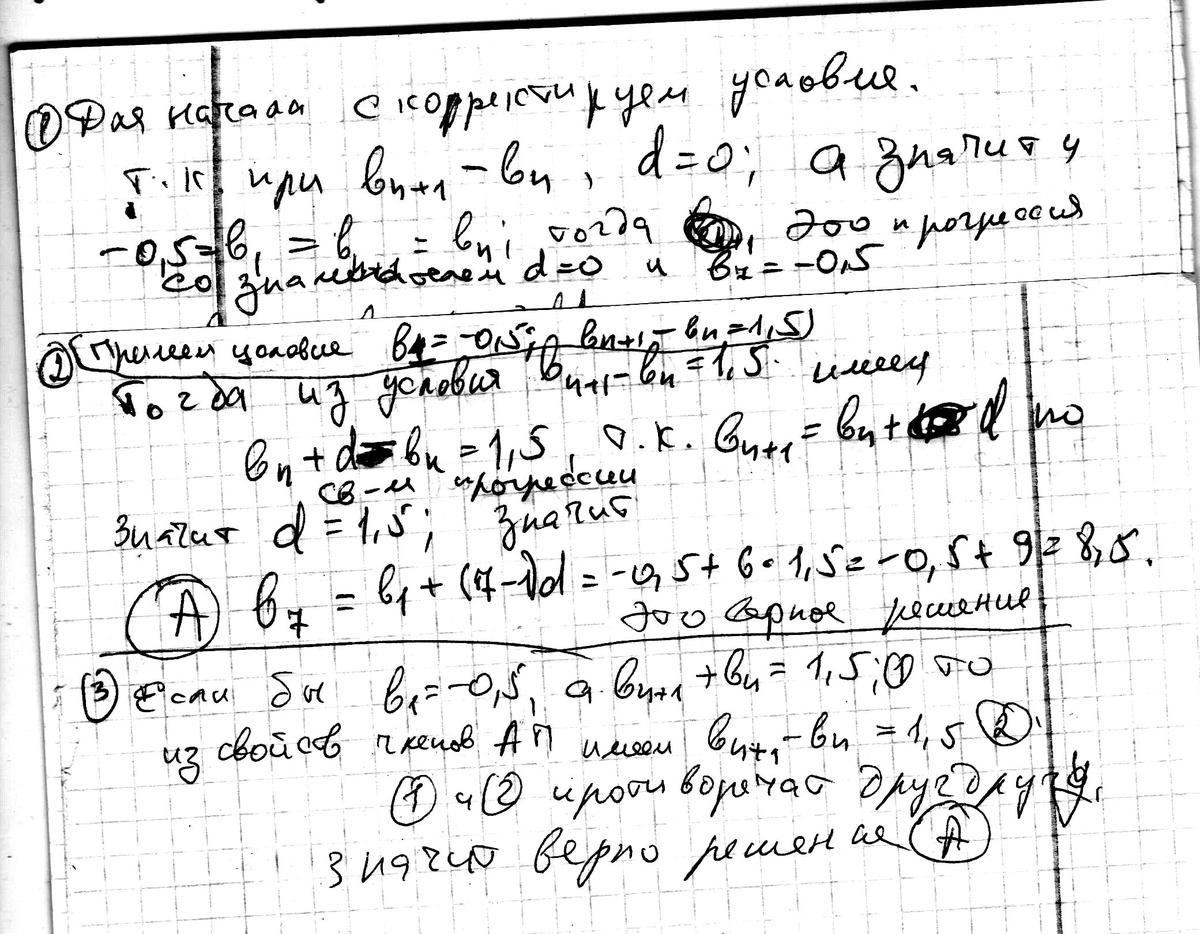 ① Для начала скорректируем условие.
т.к. при bₙ₊₁ – bₙ, d=0; а значит и
–0,5=b₁ = bₙ₊₁ = bₙ; тогда это прогрессия
со знаменателем d=0 и b₇ = –0,5
② (Примем условие b₁= –0,5; bₙ₊₁ – bₙ =1,5)
Тогда из условия bₙ₊₁–bₙ = 1,5. имеем
bₙ + d – bₙ = 1,5, т.к. bₙ₊₁ = bₙ + d по
св-м прогрессии
значит d = 1,5; значит
Ⓐ b₇ = b₁ + (7–1)d = –0,5+ 6·1,5= –0,5+ 9= 8,5.
это верное решение
③ Если бы b₁= –0,5, а bₙ₊₁ + bₙ = 1,5; ① то
из свойств членов АП имеем bₙ₊₁ – bₙ = 1,5 ②.
① и ② противоречат друг другу,
значит верно решение Ⓐ